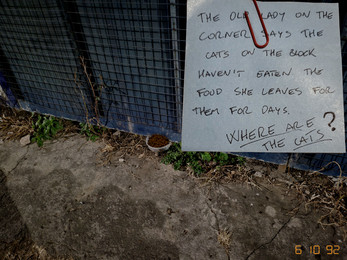 THE OLD LADY ON THE
CORNER SAYS THE
CATS ON THE BLOCK
HAVEN'T EATEN THE
FOOD SHE LEAVES FOR
THEM FOR DAYS.
WHERE ARE
THE CATS?
6 10 92